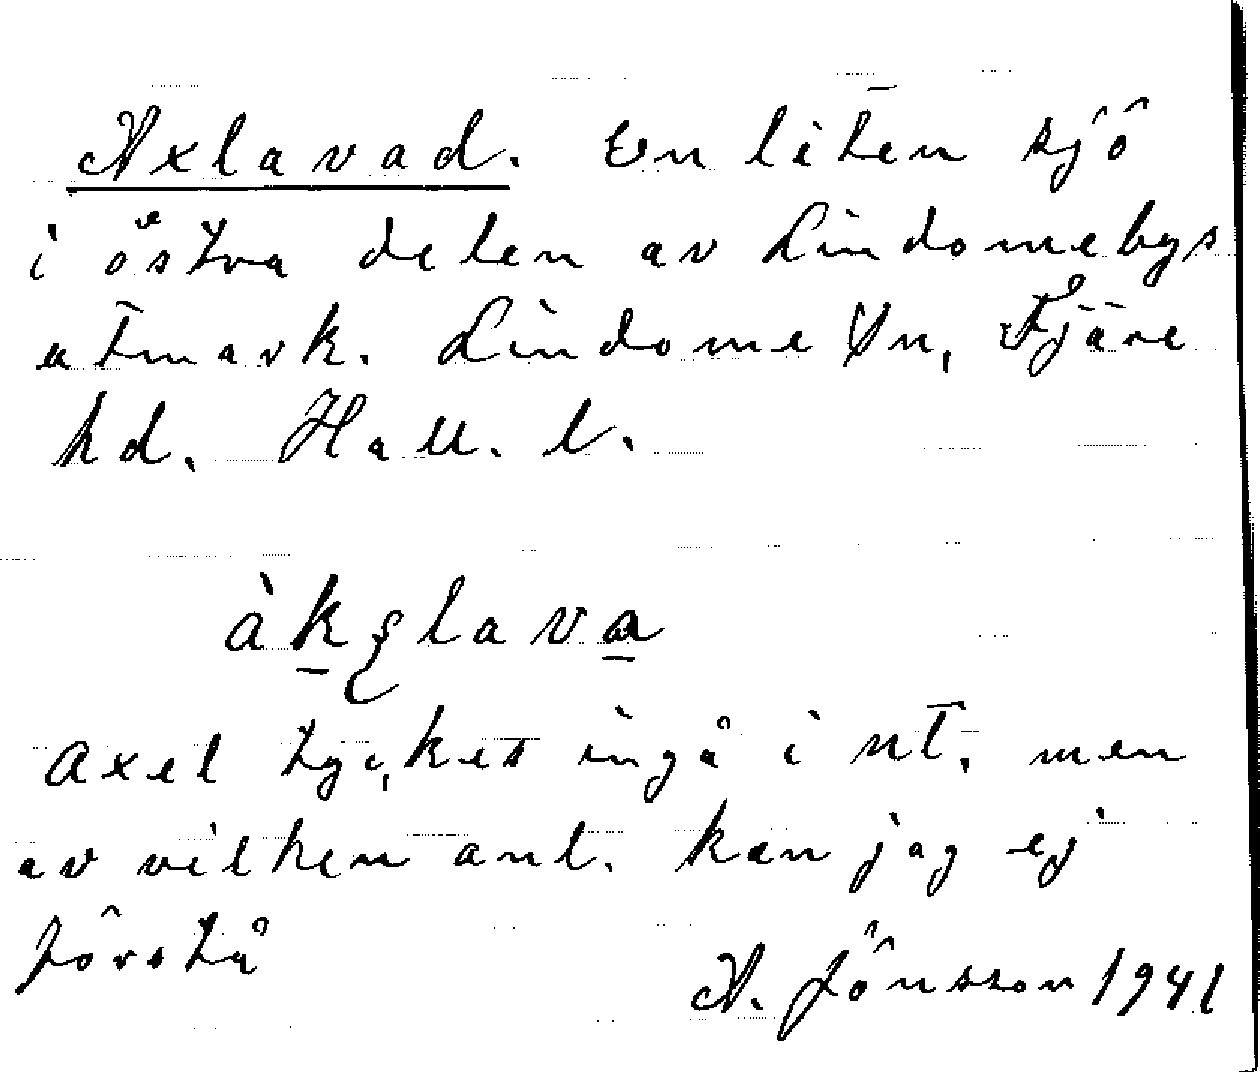 Axlavad. En liten sjö
i östra delen av Lindomebys
utmark. Lindome sn, Fjäre
hd. Hall. l.
àkslava
Axel tyckes ingå i nt. men
av vilken anl. kan jag ej
förstå
A. Jönsson 1941